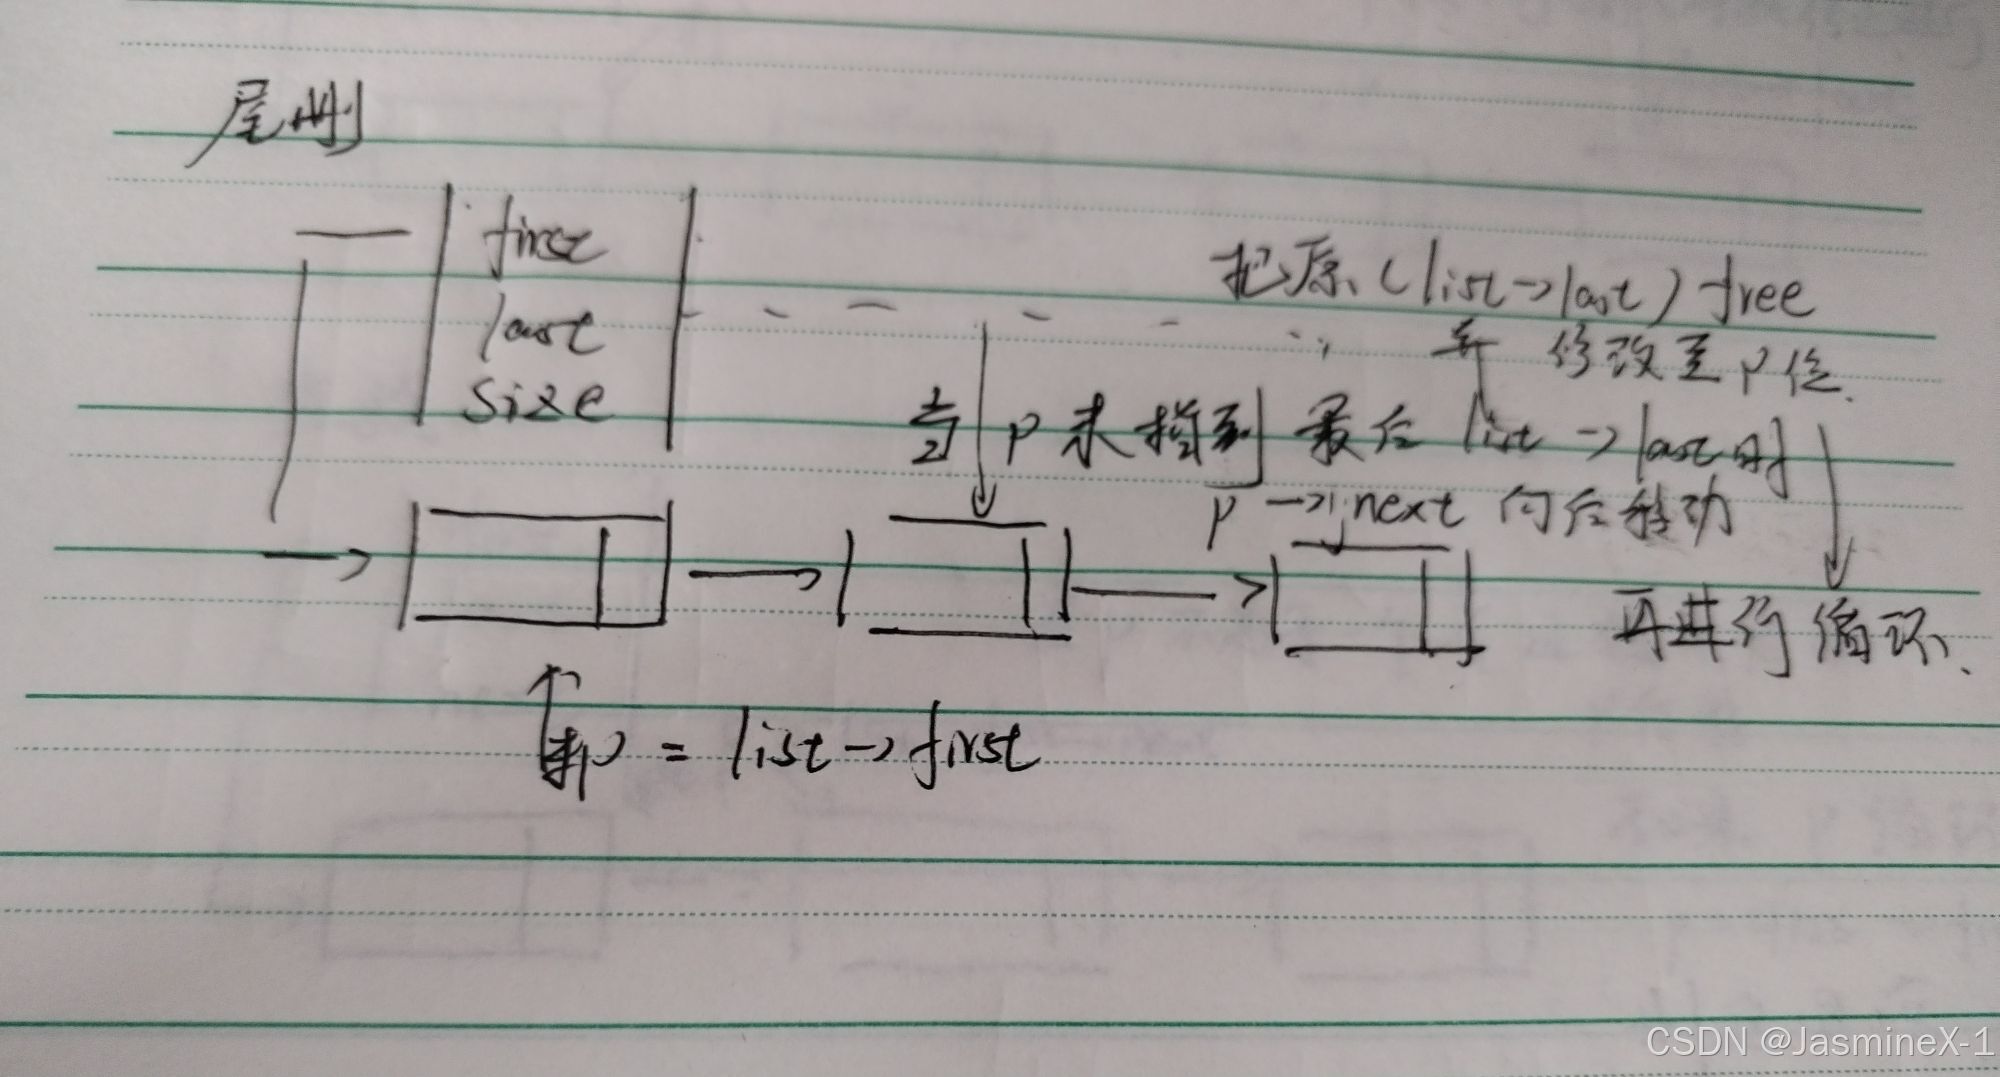 尾删
first
last
size
把原(list->last) free
并 修改至p位.
当 p未指到 最后 list->last时
p->next 向后移动
再进行循环.
p = list->first
CSDN @JasmineX-1